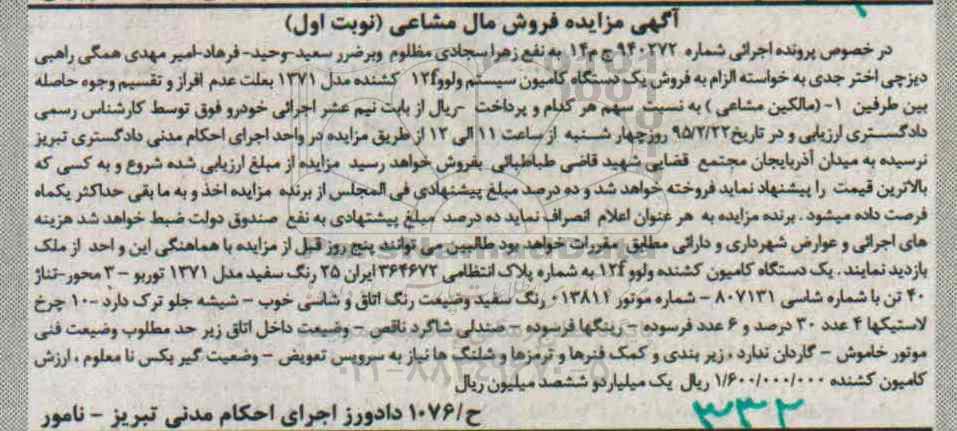 آگهی مزایده فروش مال مشاعی (نوبت اول)
در خصوص پرونده اجرائی شماره ۹۴۰۲۷۲ ج م۱۴ به نفع زهرا سجادی مظلوم وبرضرر سعید-وحید-فرهاد-امیر مهدی همگی راهبی
دیزچی اختر جدی به خواسته الزام به فروش یک دستگاه کامیون سیستم ولوو۱۲f کشنده مدل ۱۳۷۱ بعلت عدم افراز و تقسیم وجوه حاصله
بین طرفین ۱- (مالکین مشاعی) به نسبت سهم هر کدام و پرداخت -ریال از بابت نیم عشر اجرائی خودرو فوق توسط کارشناس رسمی
دادگستری ارزیابی و در تاریخ ۹۵/۲/۲۲ روزچهار شنبه از ساعت ۱۱ الی ۱۲ از طریق مزایده در واحد اجرای احکام مدنی دادگستری تبریز
نرسیده به میدان آذربایجان مجتمع قضایی شهید قاضی طباطبائی بفروش خواهد رسید مزایده از مبلغ ارزیابی شده شروع و به کسی که
بالاترین قیمت را پیشنهاد نماید فروخته خواهد شد و ده درصد مبلغ پیشنهادی فی المجلس از برنده مزایده اخذ و به ما بقی حداکثر یکماه
فرصت داده میشود. برنده مزایده به هر عنوان اعلام انصراف نماید ده درصد مبلغ پیشنهادی به نفع صندوق دولت ضبط خواهد شد هزینه
های اجرائی و عوارض شهرداری و دارائی مطابق مقررات خواهد بود طالبین می توانند پنج روز قبل از مزایده با هماهنگی این واحد از ملک
بازدید نمایند. یک دستگاه کامیون کشنده ولوو ۱۲f به شماره پلاک انتظامی ۳۶۴۶۷۲ ایران ۲۵ رنگ سفید مدل ۱۳۷۱ توربو - ۳ محور-تناژ
۴۰ تن با شماره شاسی ۸۰۷۱۳۱ - شماره موتور ۰۱۳۸۱۲ رنگ سفید وضیعت رنگ اتاق و شاسی خوب - شیشه جلو ترک دارد -۱۰ چرخ
لاستیکها ۴ عدد ۳۰ درصد و ۶ عدد فرسوده - رینگها فرسوده - صندلی شاگرد ناقص - وضیعت داخل اتاق زیر حد مطلوب وضیعت فنی
موتور خاموش - گاردان ندارد، زیر بندی و کمک فنرها و ترمزها و شلنگ ها نیاز به سرویس تعویض - وضعیت گیر بکس نا معلوم، ارزش
کامیون کشنده ۱/۶۰۰/۰۰۰/۰۰۰ ریال یک میلیاردو ششصد میلیون ریال
ح/۱۰۷۶ دادورز اجرای احکام مدنی تبریز - نامور
۳۳۲
۰۲۱-۸۸۳۴۹۶۷۰-۵